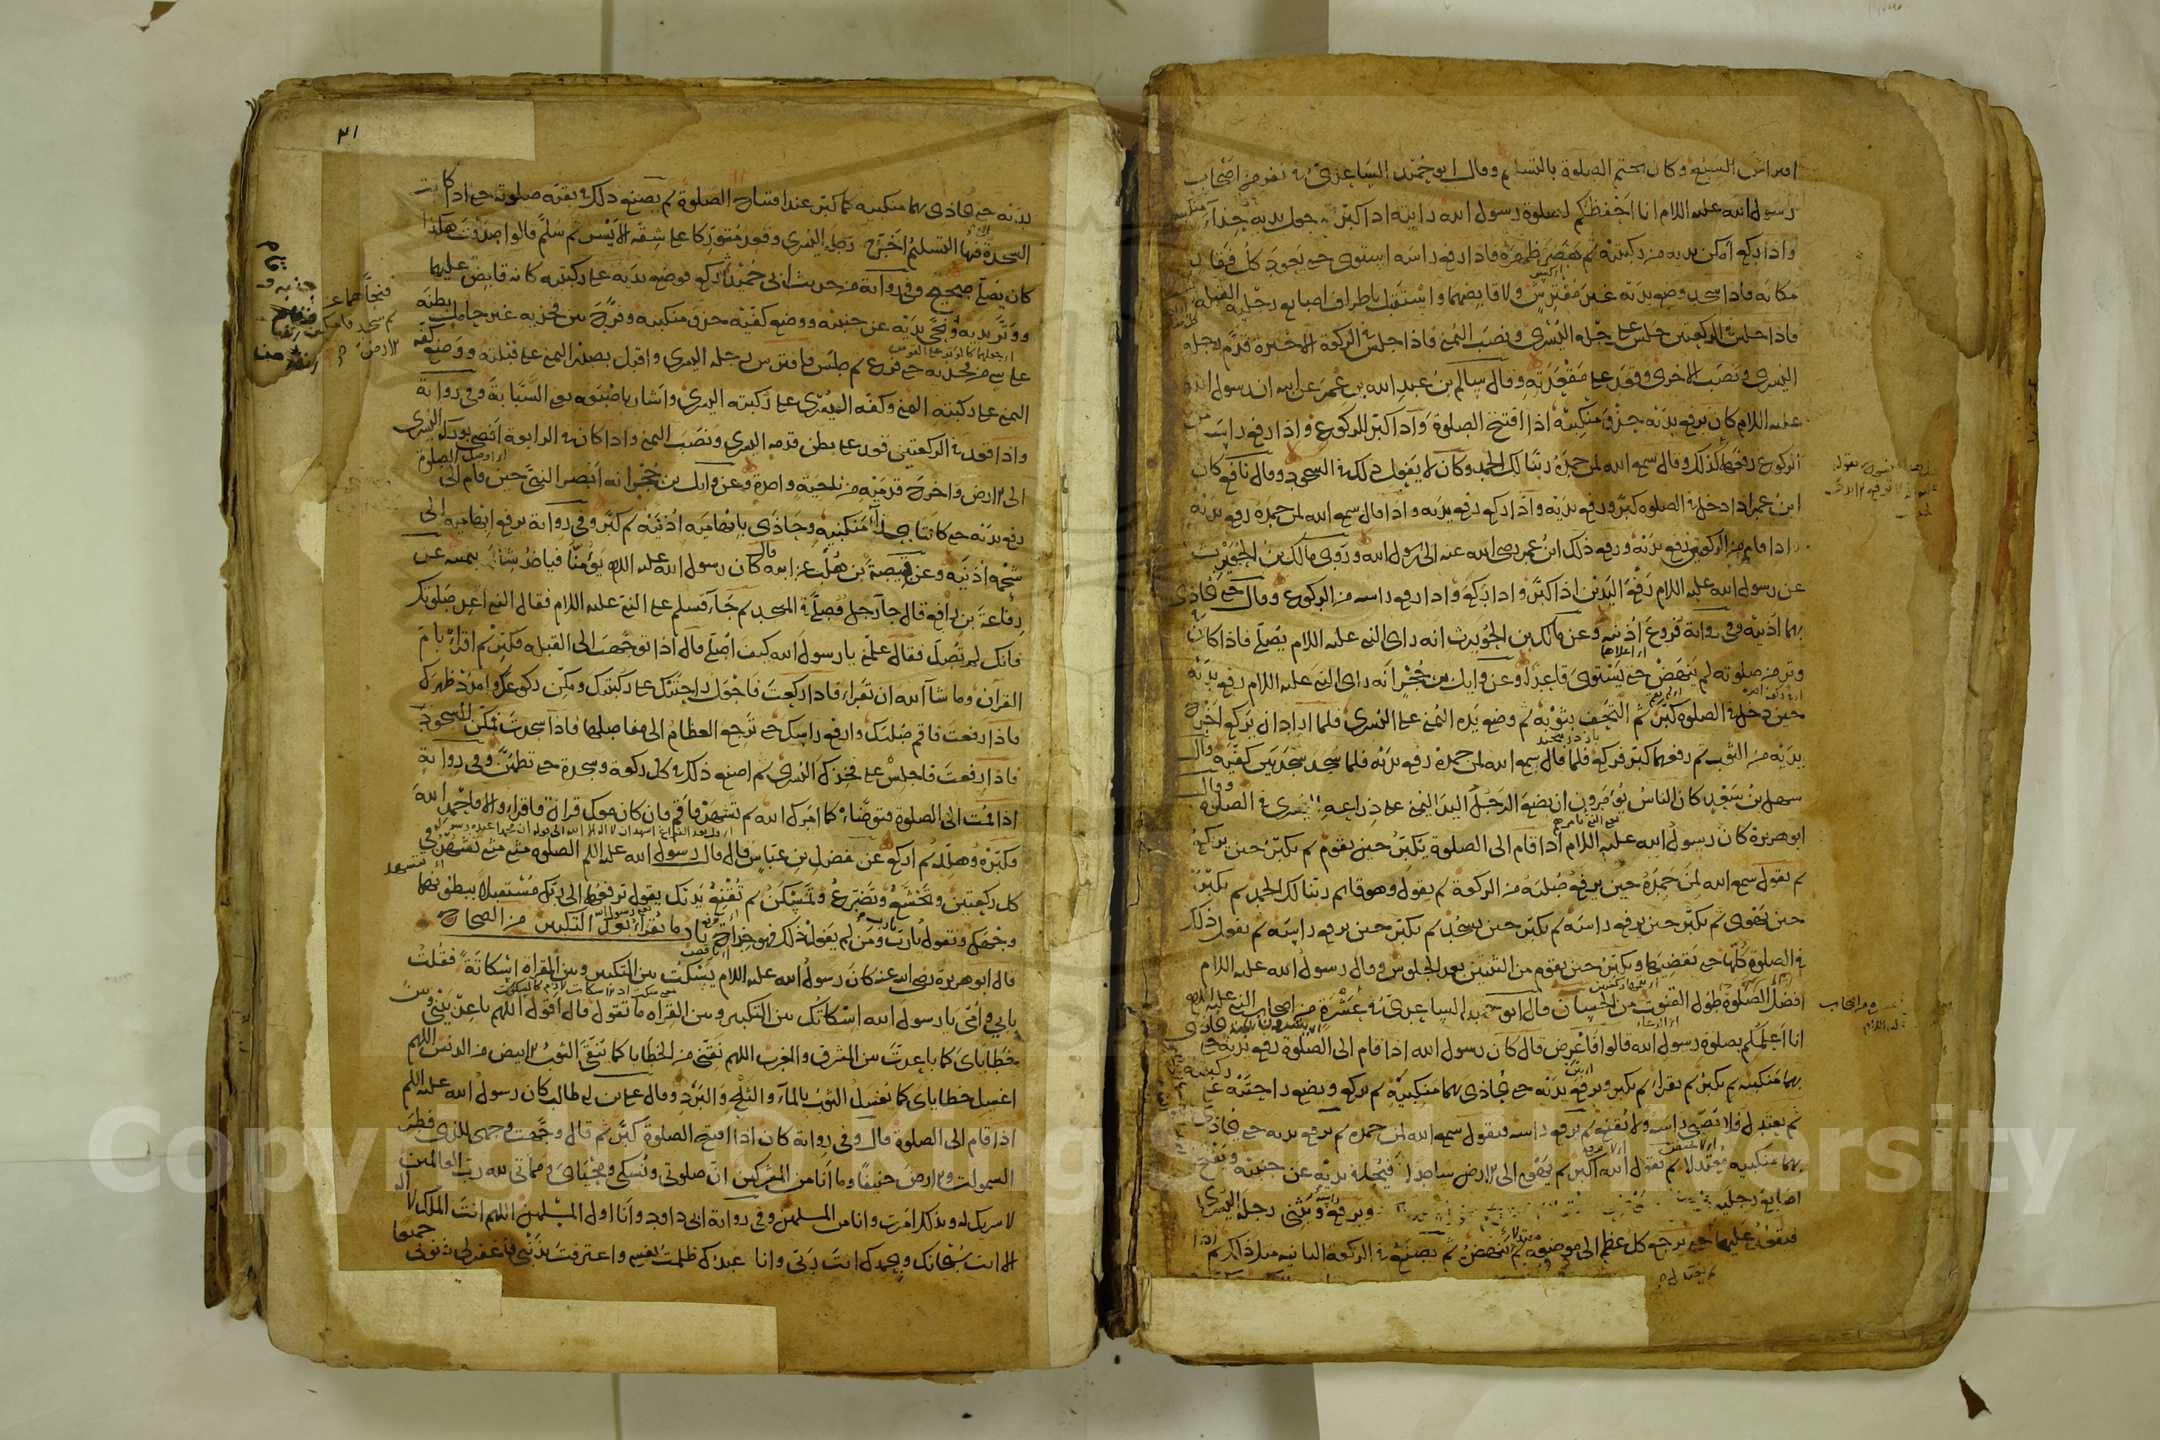 افتراش السبع وكان يختم الصلوة بالتسليم وقال ابو حميد الساعدى فى نفر من اصحاب
رسول الله عليه اللام انا احفظكم لصلوة رسول الله رايته اذا كبر جعل يديه حذآء منكبيه
واذا ركع امكن يديه من ركبتيه ثم هصر ظهره فاذا رفع راسه استوى حتى يعود كل فقار
مكانه فاذا سجد وضع يديه غير مفترش ولا قابضهما واستقبل باطراف اصابع رجليه القبلة
فاذا جلس فى الركعتين جلس على رجله اليسرى ونصب اليمنى فاذا جلس فى الركعة الاخيرة قدم رجله
اليسرى ونصب الاخرى وقعد على مقعدته وقال سالم بن عبد الله بن عمر عن ابيه ان رسول الله
عليه اللام كان يرفع يديه حذو منكبيه اذا افتتح الصلوة واذا كبر للركوع واذا رفع راسه من
الركوع رفعهما كذلك وقال سمع الله لمن حمده ربنا لك الحمد وكان لا يفعل ذلك فى السجود وقال نافع كان
ابن عمر اذا دخل فى الصلوة كبر ورفع يديه واذا ركع رفع يديه واذا قال سمع الله لمن حمده رفع يديه
واذا قام من الركعتين رفع يديه ورفع ذلك ابن عمر رضى الله عنه الى رسول الله وروى مالك بن الحويرث
عن رسول الله عليه اللام رفع اليدين اذا كبر واذا ركع واذا رفع راسه من الركوع وقال حتى يحاذى
بهما اذنيه وفى رواية فروع اذنيه وعن مالك بن الحويرث انه راى النبى عليه اللام يصلى فاذا كان فى
وتر من صلوته لم ينهض حتى يستوى قاعدا وعن وايل بن حجر انه راى النبى عليه اللام رفع يديه
حين دخل فى الصلوة كبر ثم التحف بثوبه ثم وضع يده اليمنى على اليسرى فلما اراد ان يركع اخرج
يديه من الثوب ثم رفعهما كبر فركع فلما قال سمع الله لمن حمده رفع يديه فلما سجد سجد بين كفيه وقال
سهل بن سعد كان الناس يؤمرون ان يضع الرجل اليد اليمنى على ذراعه اليسرى فى الصلوة وقال
ابو هريرة كان رسول الله عليه اللام اذا قام الى الصلوة يكبر حين يقوم ثم يكبر حين يركع
ثم يقول سمع الله لمن حمده حين يرفع صلبه من الركعة ثم يقول وهو قايم ربنا لك الحمد ثم يكبر
حين يهوى ثم يكبر حين يرفع راسه ثم يكبر حين يسجد ثم يكبر حين يرفع راسه ثم يفعل ذلك
فى الصلوة كلها حتى يقضيها ويكبر حين يقوم من الثنتين بعد الجلوس وقال رسول الله عليه اللام
افضل الصلوة طول القنوت من الحسان قال ابو حميد الساعدى فى عشرة من اصحاب النبى عليه اللام
انا اعلمكم بصلوة رسول الله قالوا فاعرض قال كان رسول الله اذا قام الى الصلوة رفع يديه حتى يحاذى
بهما منكبيه ثم يكبر ثم يقرا ثم يكبر ويرفع يديه حتى يحاذى بهما منكبيه ثم يركع ويضع راحتيه على ركبتيه
ثم يعتدل فلا يصبى راسه ولا يقنع ثم يرفع راسه فيقول سمع الله لمن حمده ثم يرفع يديه حتى يحاذى
بهما منكبيه معتدلا ثم يقول الله اكبر ثم يهوى الى الارض ساجدا فيجافى يديه عن جنبيه ويفتح
اصابع رجليه ويرفع راسه ويثنى رجله اليسرى
فيقعد عليها حتى يرجع كل عظم الى موضعه ثم ينهض ثم يصنع فى الركعة الثانية مثل ذلك ثم اذا
٢١
يديه حتى يحاذى بهما منكبيه كما كبر عند افتتاح الصلوة ثم يصنع ذلك فى بقية صلوته حتى اذا كانت
السجدة فيها التسليم اخرج رجله اليسرى وقعد متوركا على شقه الايسر ثم سلم قالوا صدقت هكذا
كان يصلى صحيح وفى رواية من حديث ابى حميد ثم ركع فوضع يديه على ركبتيه كانه قابض عليهما
ووتر يديه ونحى يديه عن جنبيه ووضع كفيه حذو منكبيه وفرج بين فخذيه غير حامل بطنه
على شى من فخذيه حتى فرغ ثم جلس فافترش رجله اليسرى واقبل بصدر اليمنى على قبلته ووضع كفه
اليمنى على ركبته اليمنى وكفه اليسرى على ركبته اليسرى واشار باصبعه يعنى السبابة وفى رواية
واذا قعد فى الركعتين قعد على بطن قدمه اليسرى ونصب اليمنى واذا كان فى الرابعة افضى بوركه اليسرى
الى الارض واخرج قدميه من ناحية واحدة وعن وايل بن حجر انه ابصر النبى حين قام الى الصلوة
رفع يديه حتى كانتا بحيال منكبيه وحاذى بابهاميه اذنيه ثم كبر وفى رواية يرفع ابهاميه الى
شحمة اذنيه وعن قبيصة بن هلب عن ابيه قال كان رسول الله عليه اللام يؤمنا فياخذ شماله بيمينه عن
رفاعة بن رافع قال جآ رجل فصلى فى المسجد ثم جآء فسلم على النبى عليه اللام فقال النبى اعد صلوتك
فانك لم تصل فقال علمنى يا رسول الله كيف اصلى قال اذا توجهت الى القبلة فكبر ثم اقرا بام
القرآن وما شآ الله ان تقراء فاذا ركعت فاجعل راحتيك على ركبتيك ومكن ركوعك وامدد ظهرك
فاذا رفعت فاقم صلبك وارفع راسك حتى ترجع العظام الى مفاصلها فاذا سجدت فمكن للسجود
فاذا رفعت فاجلس على فخذك اليسرى ثم اصنع ذلك فى كل ركعة وسجدة حتى تطمئن وفى رواية
اذا قمت الى الصلوة فتوضاء كما امرك الله ثم تشهد فاقم فان كان معك قرآن فاقراء والا فاحمد الله
وكبره وهلله ثم اركع عن فضل بن عباس قال قال رسول الله عليه اللم الصلوة مثنى مثنى تشهد فى
كل ركعتين وتخشع وتضرع وتمسكن ثم تقنع يديك يقول ترفعهما الى ربك مستقبلا ببطونهما
وجهك وتقول يا رب ومن لم يفعل ذلك فهو خداج باب ما يقراء بعد التكبير من الصحاح
قال ابو هريرة رضى الله عنه كان رسول الله عليه اللام يسكت بين التكبير وبين القراة اسكاتة فقلت
بابى وامى يا رسول الله اسكاتك بين التكبير وبين القراة ما تقول قال اقول اللهم باعد بينى وبين
خطاياى كما باعدت بين المشرق والمغرب اللهم نقنى من الخطايا كما ينقى الثوب الابيض من الدنس اللهم
اغسل خطاياى كما يغسل الثوب بالمآء والثلج والبرد وقال على بن ابى طالب كان رسول الله عليه اللم
اذا قام الى الصلوة قال وفى رواية كان اذا افتتح الصلوة كبر ثم قال وجهت وجهى للذى فطر
السموات والارض حنيفا وما انا من المشركين ان صلوتى ونسكى ومحياى ومماتى لله رب العالمين
لا شريك له وبذلك امرت وانا من المسلمين وفى رواية ابى داود وانا اول المسلمين اللهم انت الملك لا اله
الا انت سبحانك وبحمدك انت ربى وانا عبدك ظلمت نفسى واعترفت بذنبى فاغفر لى ذنوبى جميعا
Copyright © King Saud University